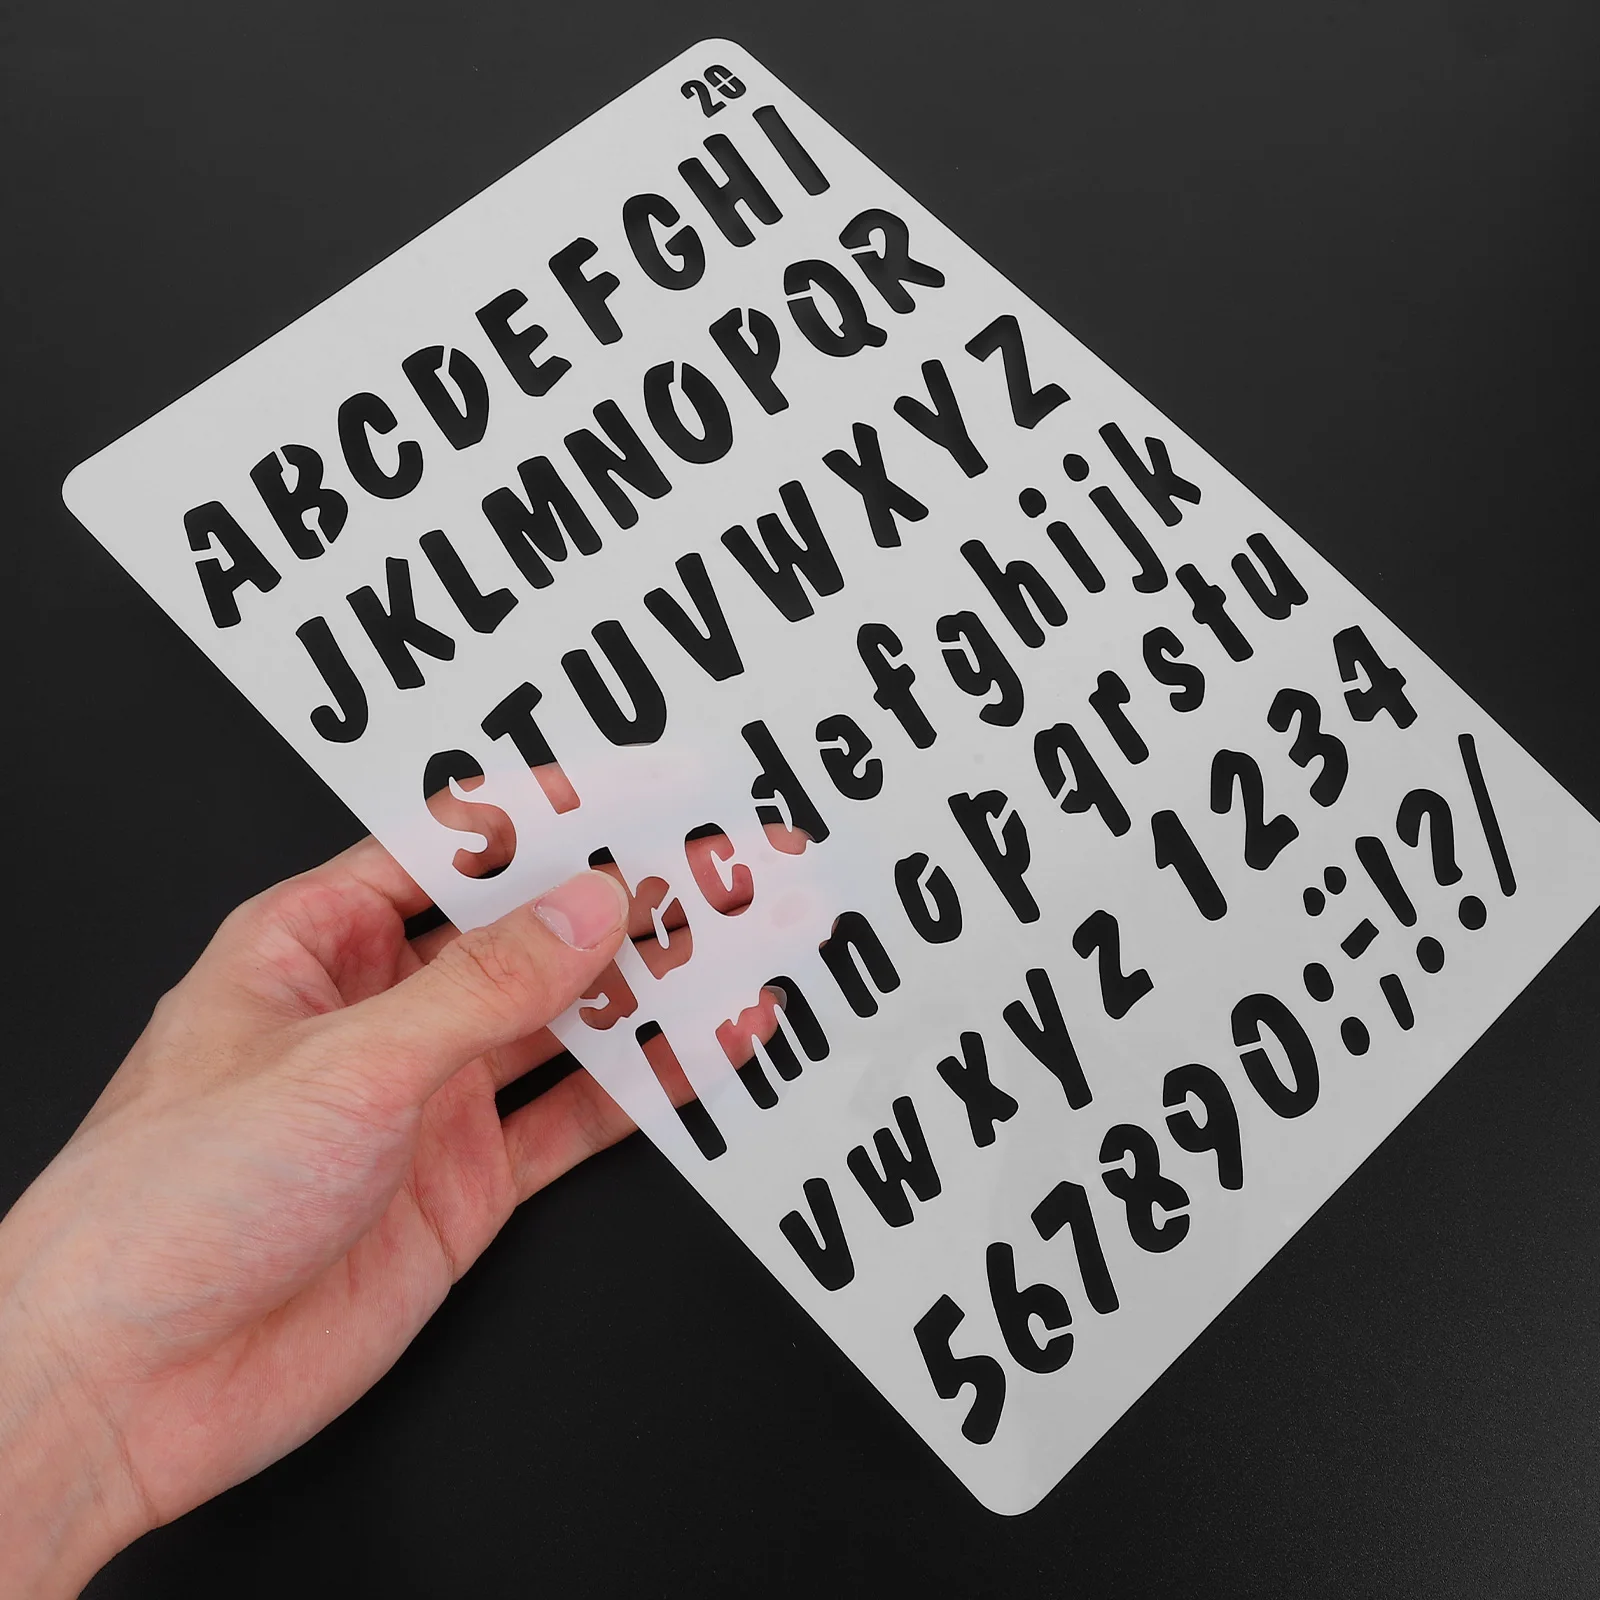 ABCDEFGHI
JKLMNOPQR
STUVWXYZ
abcdefghijk
lmnopqrstu
vwxyz 1234
567890:¨-,!?/